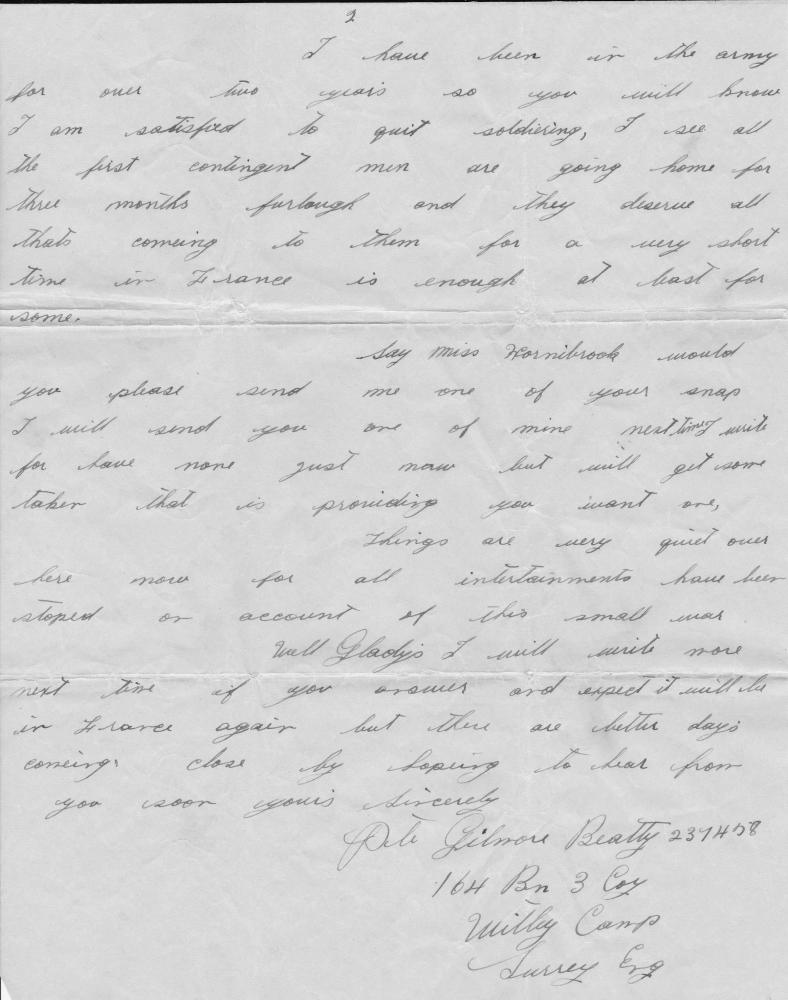 2
I have been in the army
for over two years so you will know
I am satisfied to quit soldiering, I see all
the first contingent men are going home for
three months furlough and they deserve all
thats comeing to them for a very short
time in France is enough at least for
some.
Say Miss Hornibrook would
you please send me one of your snap
I will send you one of mine next time I write
for have none just now but will get some
taken that is provideing you want one,
Things are very quiet over
here now for all intertainments have been
stoped on account of this small war
Well Gladys I will write more
next time if you answer and expect it will be
in France again but there are better days
comeing close by hopeing to hear from
you soon yours Sincerely
Pte Gilmore Beatty
164 Bn 3 Coy
Witley Camp
Surrey Eng